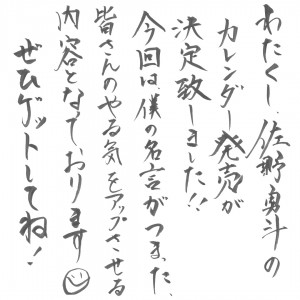 わたくし、佐野勇斗の
カレンダー発売が
決定致しました!!
今回は、僕の名言がつまった、
皆さんのやる気をアップさせる
内容となっております☺
ぜひゲットしてね!